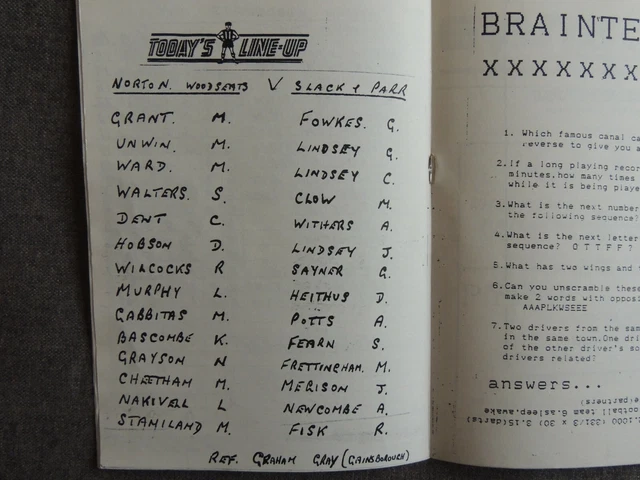 TODAY'S LINE-UP
NORTON WOODSEATS V SLACK & PARR
GRANT. M. FOWKES. G.
UNWIN. M. LINDSEY G.
WARD. M. LINDSEY C.
WALTERS. S. CLOW M.
DENT C. WITHERS A.
HOBSON D. LINDSEY J.
WILCOCKS R SAYNER G.
MURPHY L. HEITHUS D.
GABBITAS M. POTTS A.
BASCOMBE K. FEARN S.
GRAYSON N FRETTINGHAM. M.
CHEETHAM M. MERISON J.
NAKIVELL L NEWCOMBE A.
STANILAND M. FISK R.
REF. GRAHAM GRAY (GAINSBOROUGH)
BRAINTE
XXXXXXX
1. Which famous canal ca
reverse to give you a
2.If a long playing recor
minutes.how many times
while it is being playe
3.What is the next number
the following sequence?
4.What is the next letter
sequence? O T T F F ?
5.What has two wings and
6.Can you unscramble these
make 2 words with oppos
AAAPLKWSEEE
7.Two drivers from the sam
in the same town.One dri
of the other driver's so
drivers related?
answers...
(partners)
football team 6.asleep,awake
2.1000 (331/3 x 30) 3.15(darts)